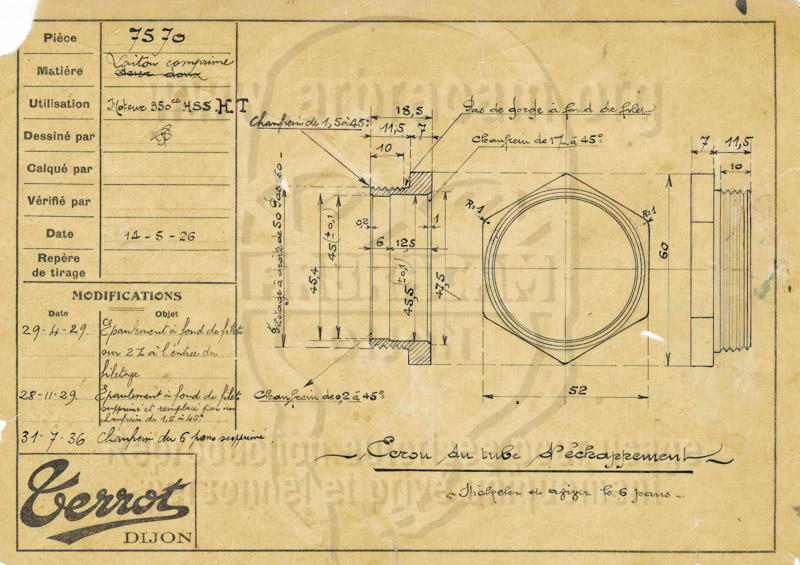 Pièce 7570
Matière Laiton comprimé
Utilisation Moteur 350cc HSS.H.T
Dessiné par
Calqué par
Vérifié par
Date 14-5-26
Repère
de tirage
MODIFICATIONS
Date Objet
29-4-29. Epaulement à fond de filets
sur 2 à l'entrée du
filetage
28-11-29. Epaulement à fond de filets
supprimé et remplacé par un
chanfrein de 1,5 à 45°
31-7-36 Chanfrein des 6 pans supprimé
Terrot
DIJON
18,5
Pas de gorge à fond de filet
Chanfrein de 1,5 à 45°
11,5 7
Chanfrein de 1 à 45°
10
7 11,5
10
Filetage à droite de 50 Pas 150
45,4
45 (±0,1)
0,2
6 12,5
1
45,5 (±0,1)
47,5
R=1
R=1
60
52
Chanfrein de 0,2 à 45°
Ecrou du tube d'échappement
Nickeler et aviver les 6 pans